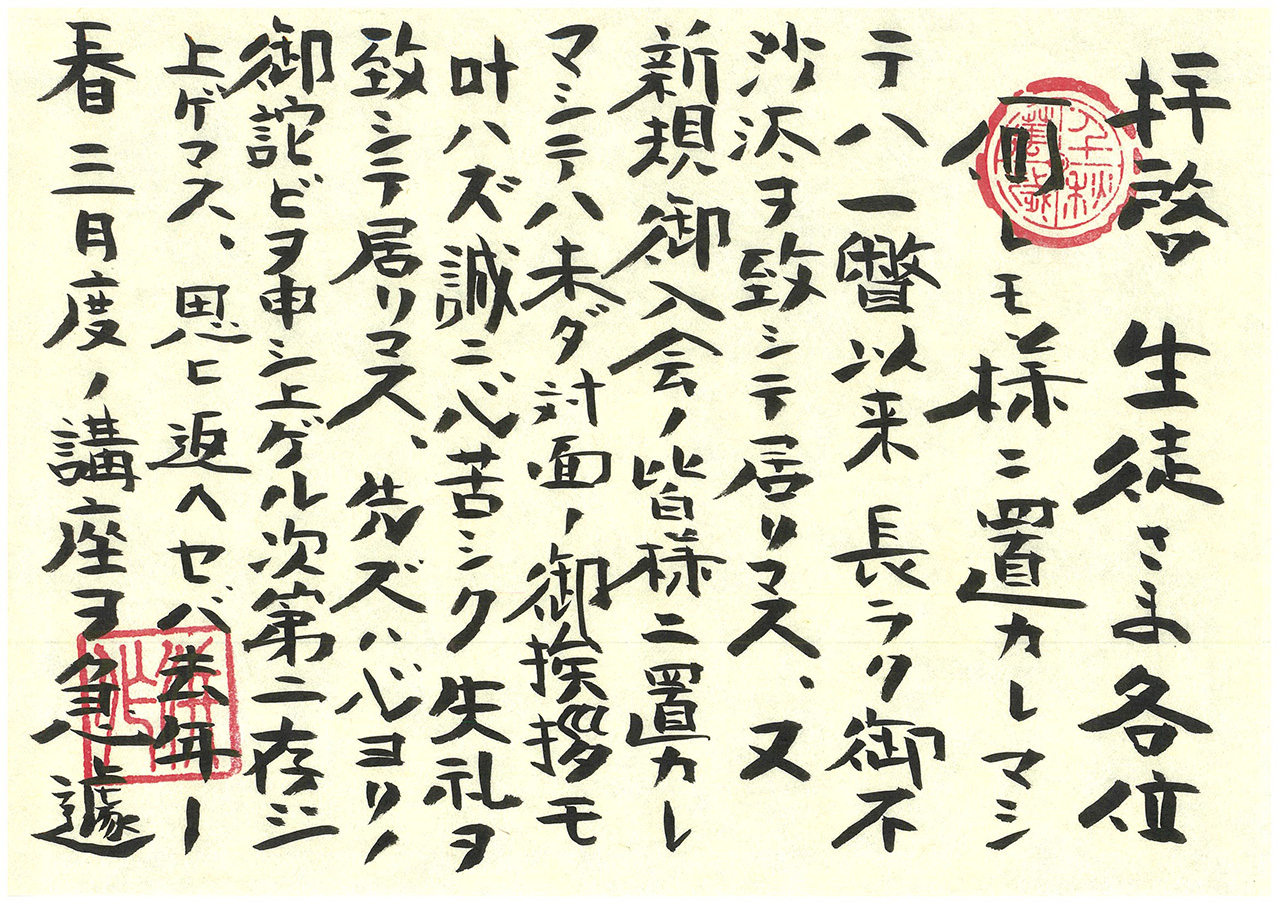 拝啓 生徒さま各位
何レモ様ニ置カレマシ
テハ一瞥以来長ラク御不
沙汰ヲ致シテ居リマス、又
新規御入会ノ皆様ニ置カレ
マシテハ未ダ対面ノ御挨拶モ
叶ハズ誠ニ心苦シク失礼ヲ
致シテ居リマス、先ズハ心ヨリノ
御詑ビヲ申シ上ゲル次第ニ存ジ
上ゲマス、思ヒ返ヘセバ去年ー
春三月度ノ講座ヲ急遽